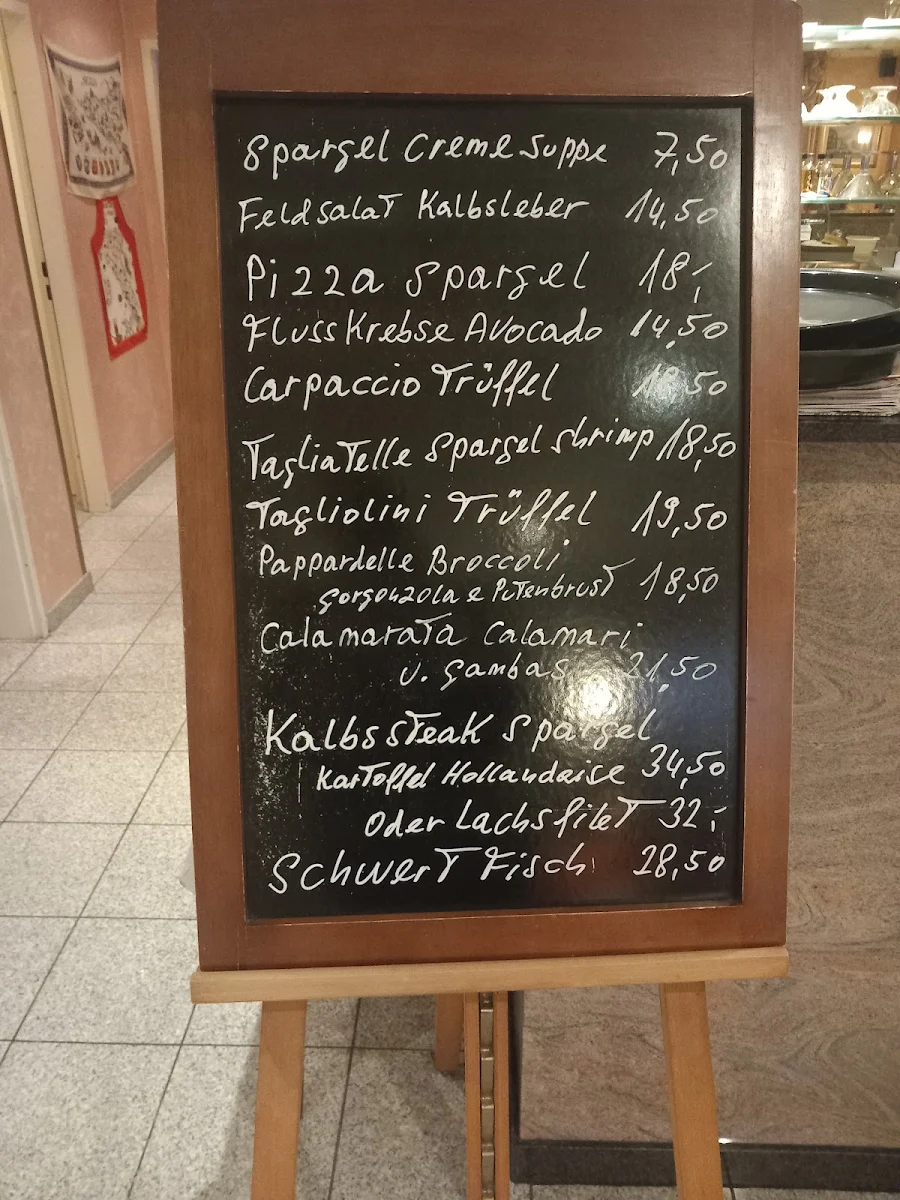 Spargel Cremesuppe 7,50
Feldsalat Kalbsleber 14,50
Pizza Spargel 18,-
Flusskrebse Avocado 14,50
Carpaccio Trüffel
Tagliatelle Spargel shrimp 18,50
Tagliolini Trüffel 19,50
Pappardelle Broccoli
gorgonzola e Putenbrust 18,50
Calamarata Calamari
u. gambas 21,50
Kalbssteak Spargel
Kartoffel Hollandaise 34,50
Oder Lachsfilet 32,-
Schwert Fisch 28,50